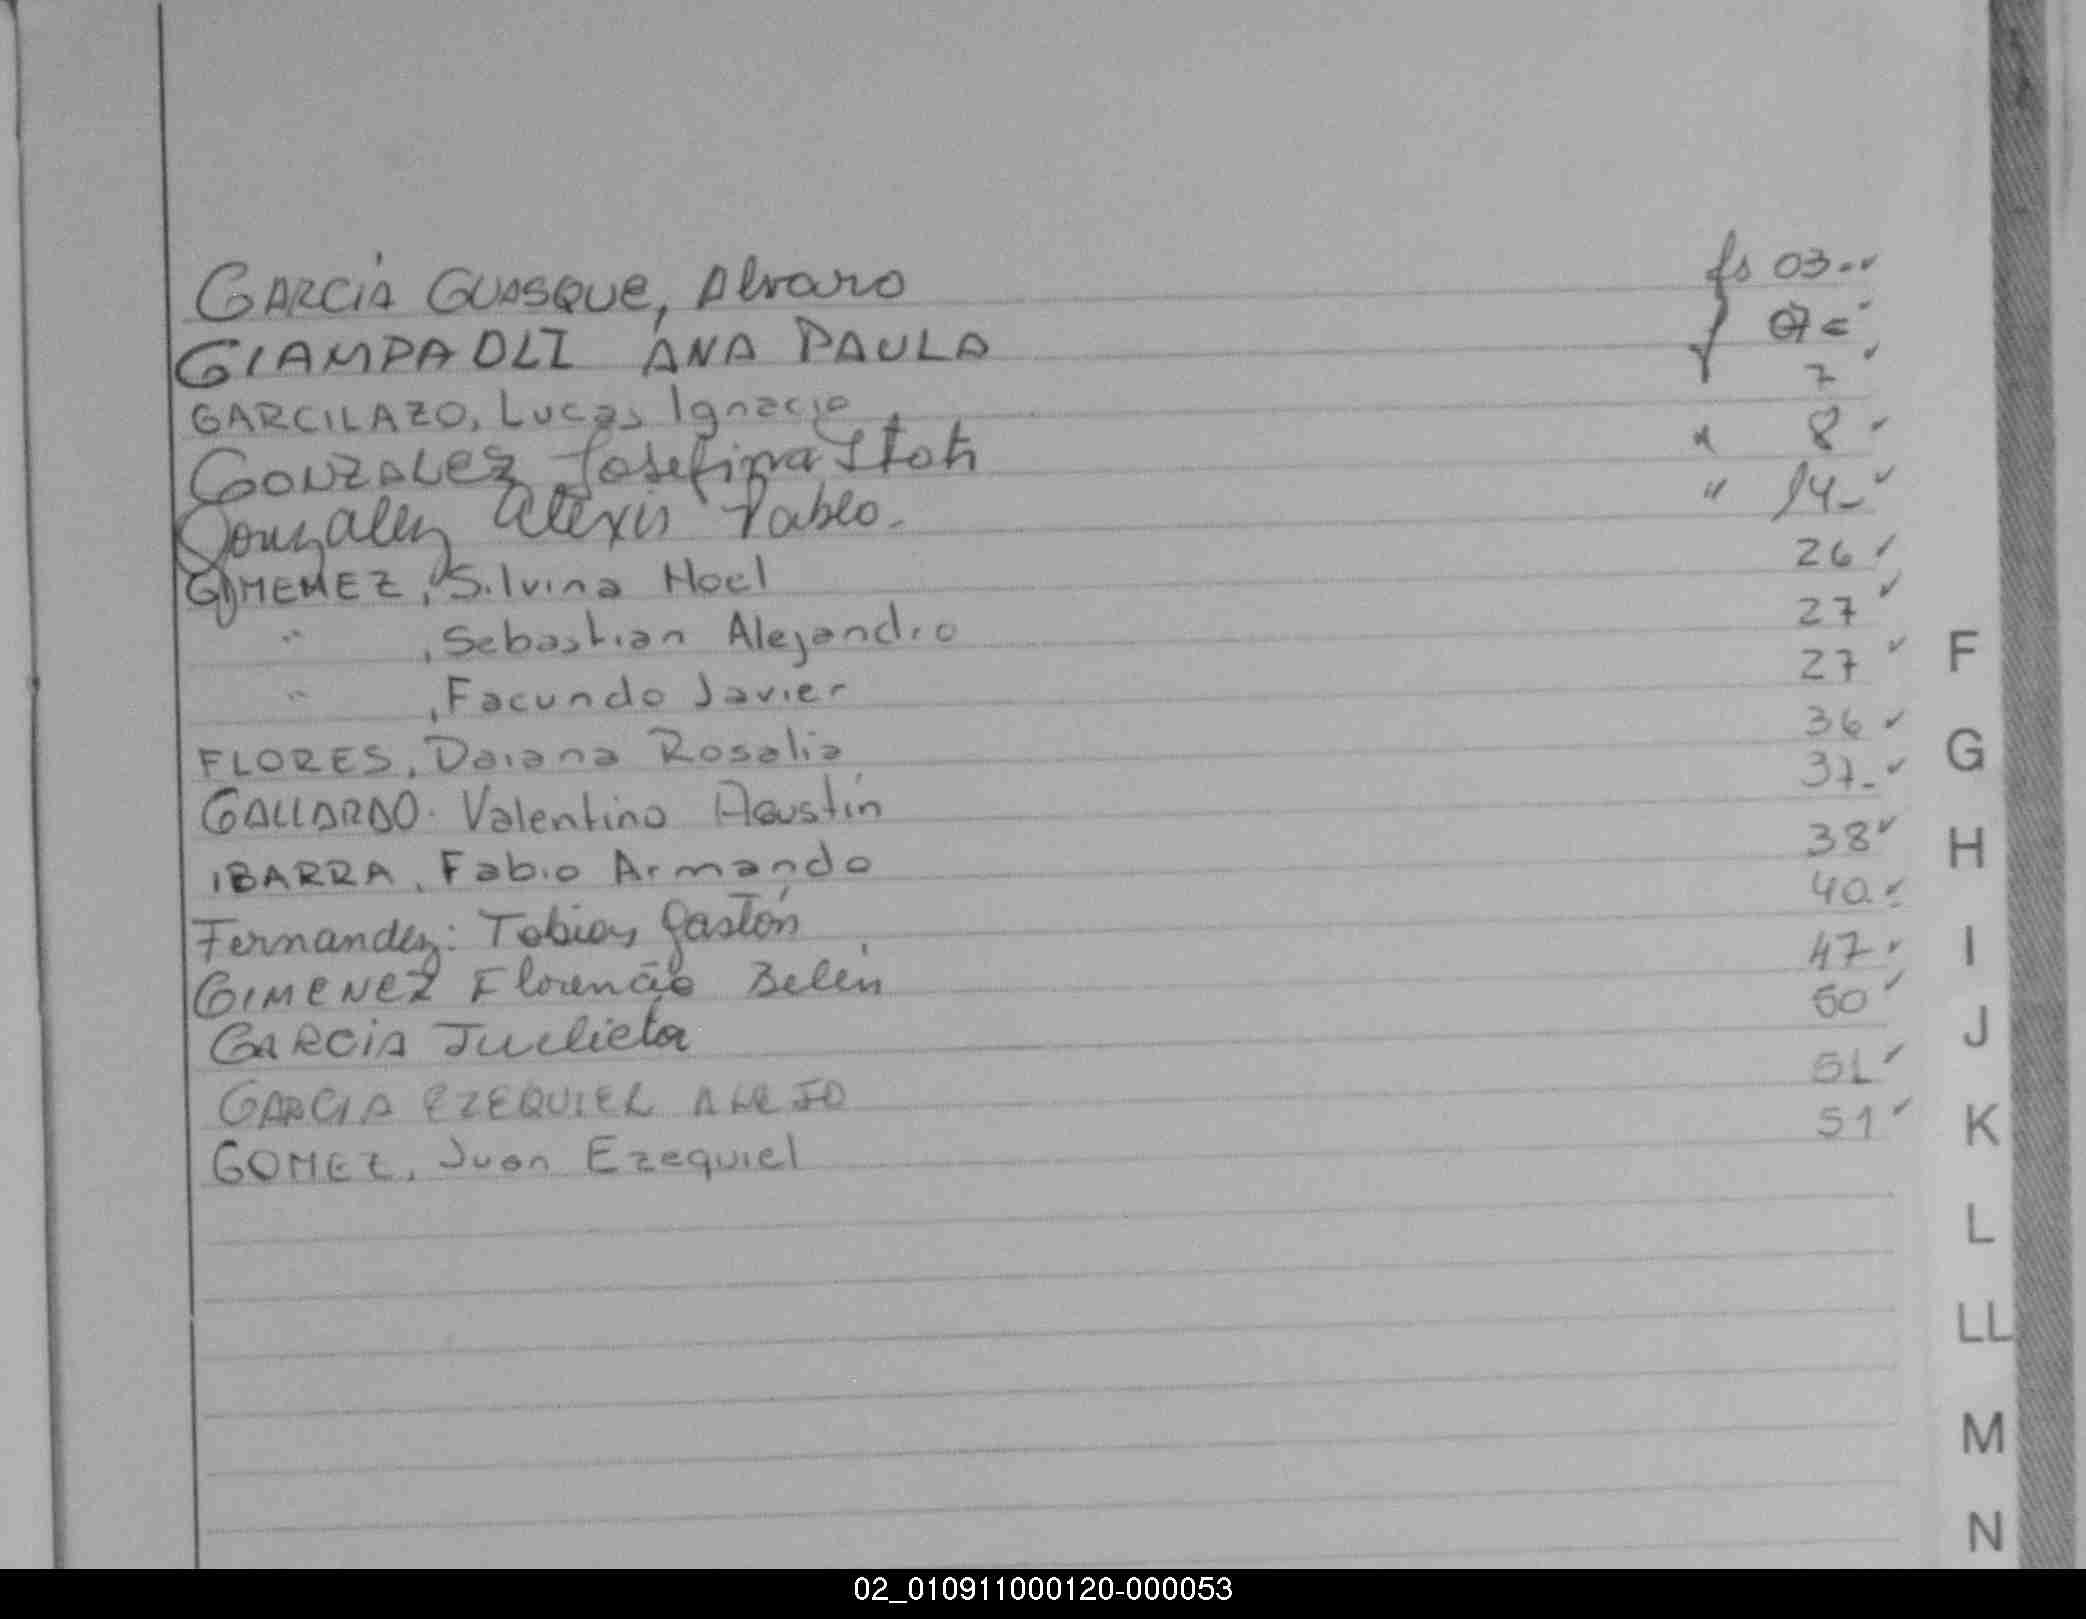 GARCIA GUASQUE, Alvaro fs 03-
GIAMPAOLI ANA PAULA 07
GARCILAZO, Lucas Ignacio 7
GONZALEZ Josefina " 8
Gonzalez Alexis Pablo.- " 14-
GIMENEZ, Silvina Noel 26
" , Sebastian Alejandro 27
" , Facundo Javier 27
FLORES, Daiana Rosalia 36
GALLARDO. Valentino Agustín 37-
IBARRA, Fabio Armando 38
Fernandez: Tobias Gastón 40.
GIMENEZ Florencia Belén 47
GARCIA Juelieta 50
GARCIA EZEQUIEL ALEJO 51
GOMEZ, Juan Ezequiel 51
F
G
H
I
J
K
L
LL
M
N
02_010911000120-000053